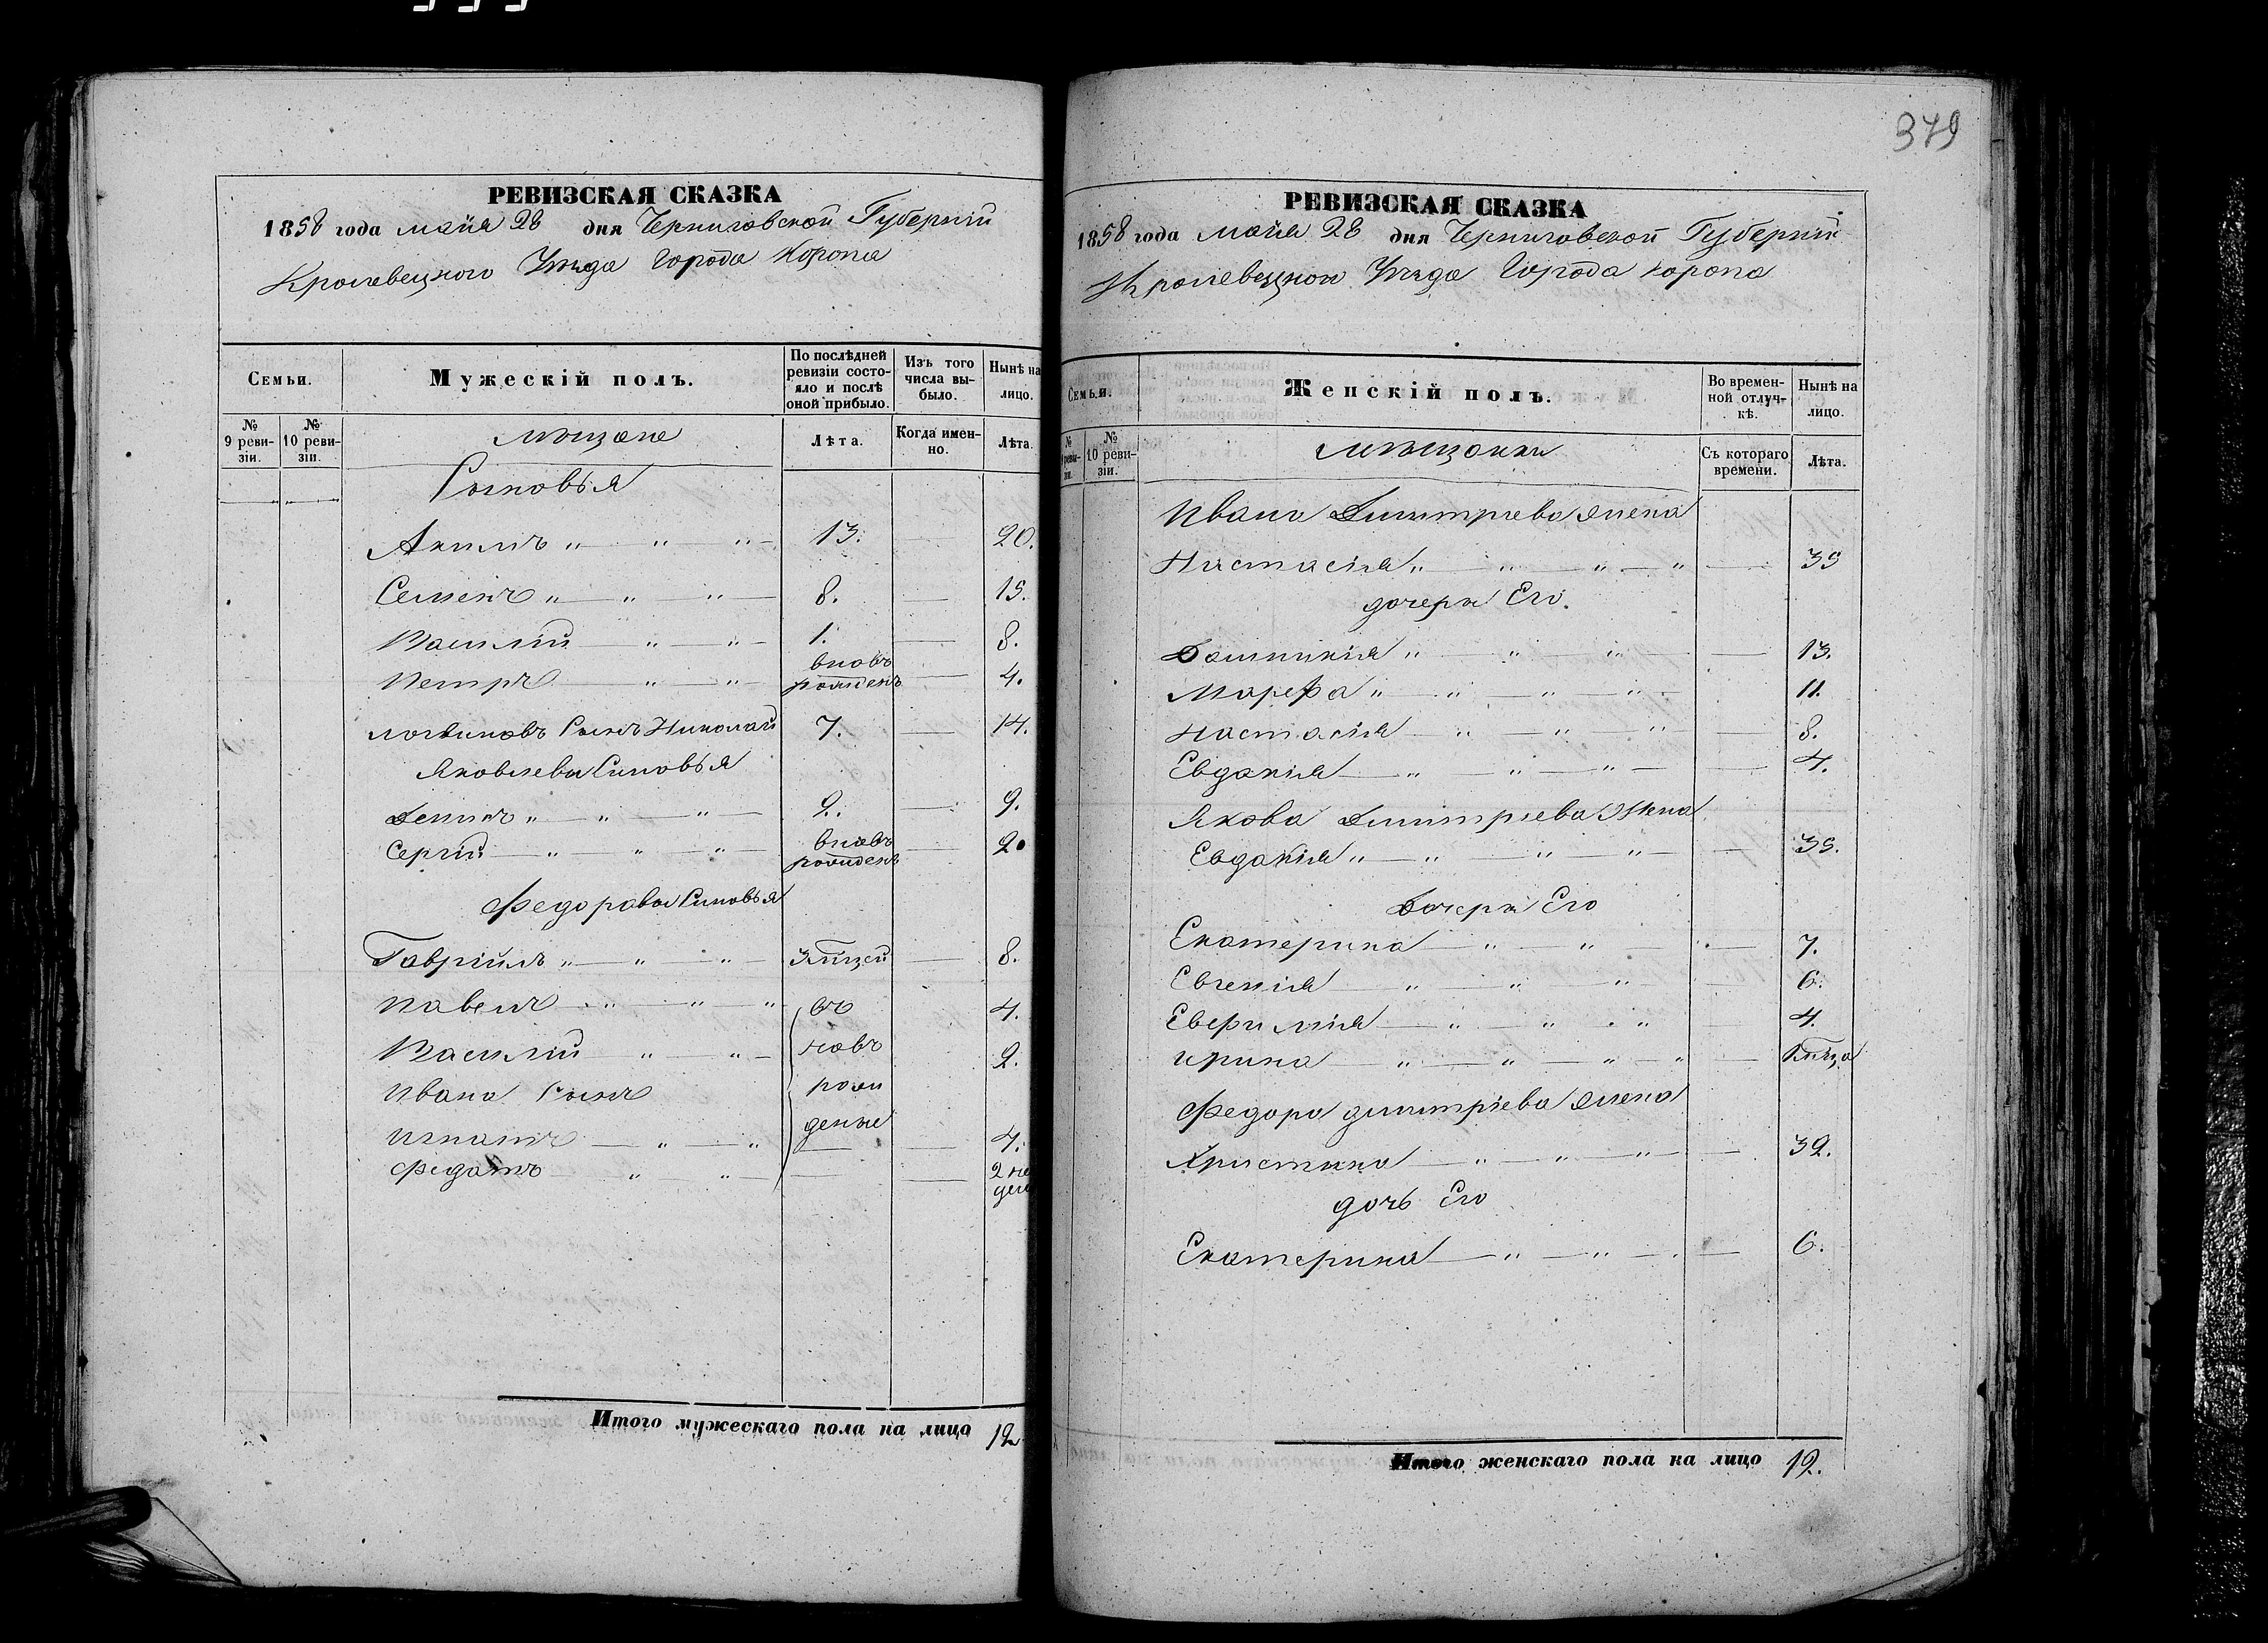 379
РЕВИЗСКАЯ СКАЗКА
1858 года майя 28 дня Черниговской Губерніи
Кролевецкого Уѣзда Города Коропа
Семьи.
Мужескій полъ.
По послѣдней ревизіи состояло и послѣ оной прибыло.
Изъ того числа выбыло.
Нынѣ на лицо.
№ 9 ревизіи.
№ 10 ревизіи.
мѣщане
Лѣта.
Когда именно.
Лѣта.
Сыновья
Акимъ 13. 20.
Семенъ 8. 15.
Василій 1. 8.
Петръ вновь рожденъ 4.
Логвиновъ Сынъ Николай 7. 14.
Яковлевы Синовья
Демидъ 2. 9.
Сергій вновь рожденъ 2
Федоровы Синовья
Гавріилъ 8.
Павелъ въ 4.
Василій новъ 2.
Ивана Сынъ рожи
Игнатъ денные 4.
Федотъ 2 не
дели
Итого мужескаго пола на лицо 12
РЕВИЗСКАЯ СКАЗКА
1858 года майя 28 дня Черниговской Губерніи
Кролевецкого Уѣзда Города Коропа
Семьи.
Женскій полъ.
Во временной отлучкѣ.
Нынѣ на лицо.
№ 10 ревизіи.
мѣщанки
Съ котораго времени.
Лѣта.
Ивана Димитріева жена
Настасія 35
дочери Его.
Домникія 13.
Марефа 11.
Настасія 8.
Евдакія 4.
Якова Димитріева жена
Евдакія 35.
Дочери Его
Екатерина 7.
Евгенія 6.
4.
Ирина
Федора димитріева жена
Христина 32.
дочь Его
Екатерина 6.
Итого женскаго пола на лицо 12.